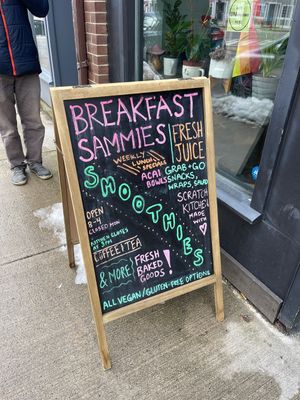 BREAKFAST
SAMMIES
FRESH
JUICE
WEEKLY LUNCH SPECIALS
ACAI
BOWLS
GRAB + GO
SNACKS,
WRAPS, SALAD
SMOOTHIES
SCRATCH
KITCHEN
MADE WITH
OPEN
8-4
CLOSED
KITCHEN CLOSES
AT 3PM
COFFEE + TEA
& MORE!
FRESH
BAKED
GOODS!
ALL VEGAN / GLUTEN-FREE OPTIONS